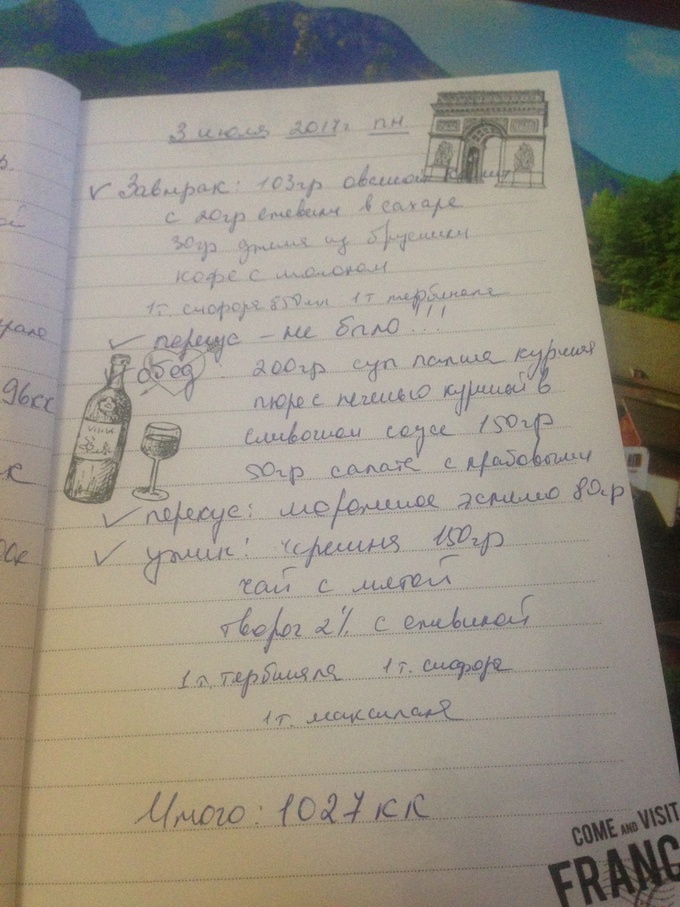 3 июля 2017г пн.
Завтрак: 103гр овсяной
с 20гр сливки в сахаре
30гр джема из брусники
кофе с молоком
1т. сиофора 850мл 1т тербинала
перекус - не было!!!
обед: 200гр суп лапша куриная
пюре с печенью куриной в
сливошом соусе 150гр
50гр салата с крабовыми
перекус: мороженое эскимо 80гр
ужин: черешня 150гр
чай с мятой
творог 2% с
1т. 1т. сиофора
1т.
Итого: 1027 кк
96кк
к
VINUM
COME AND VISIT
FRANC